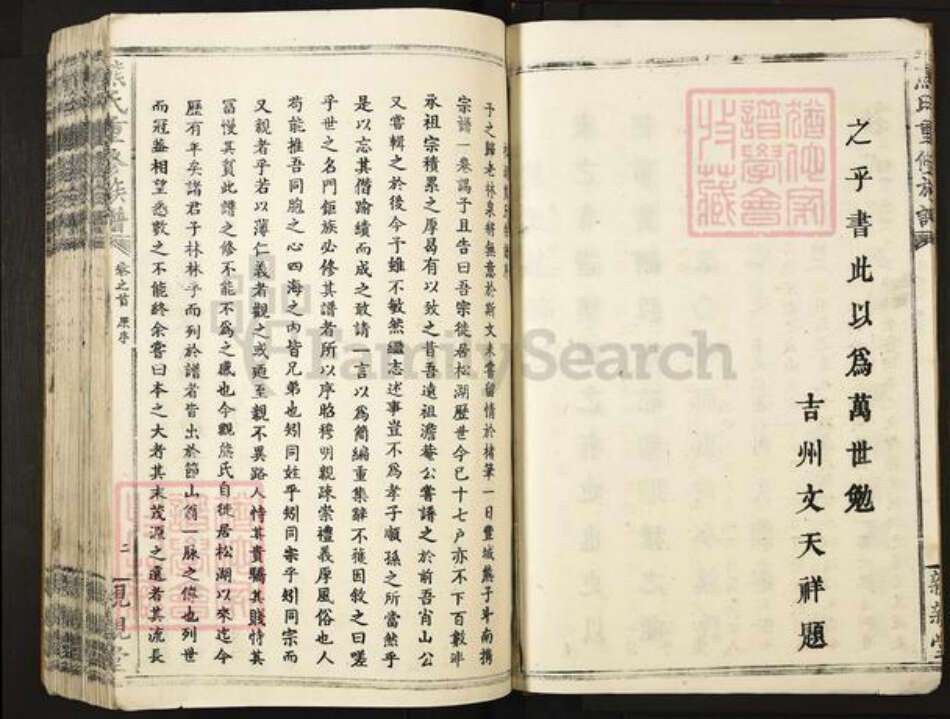 之乎書此以爲萬世勉
吉州文天祥題
子之歸老林泉將無意於斯文未嘗留情於楮筆一日豐城熊子斗南携
宗譜一卷謁予且告曰吾宗徙居松湖歷世今已十七戶亦不下百數非
承祖宗積累之厚曷有以致之昔吾遠祖澹菴公嘗譜之於前吾肖山公
又嘗輯之於後今予雖不敏然繼志述事豈不爲孝子順孫之所當然乎
是以忘其僭踰續而成之敢請一言以爲簡編重集辭不獲因敘之曰嗟
乎世之名門鉅族必修其譜者所以序昭穆明親疎崇禮義厚風俗也人
苟能推吾同胞之心四海之內皆兄弟也矧同姓乎矧同宗乎矧同宗而
又親者乎若以薄仁義者觀之或廼至親不異路人恃其貴驕其賤恃其
富慢其貧此譜之修不能不爲之慼也今觀熊氏自徙居松湖以來迄今
歷有年矣諸君子林林乎而列於譜者皆出於節山翁一脉之傳也列世
而冠葢相望悉數之不能終余嘗曰本之大者其末茂源之遠者其流長
熊氏重修族譜
卷之首 原序
二
親親堂
FamilySearch